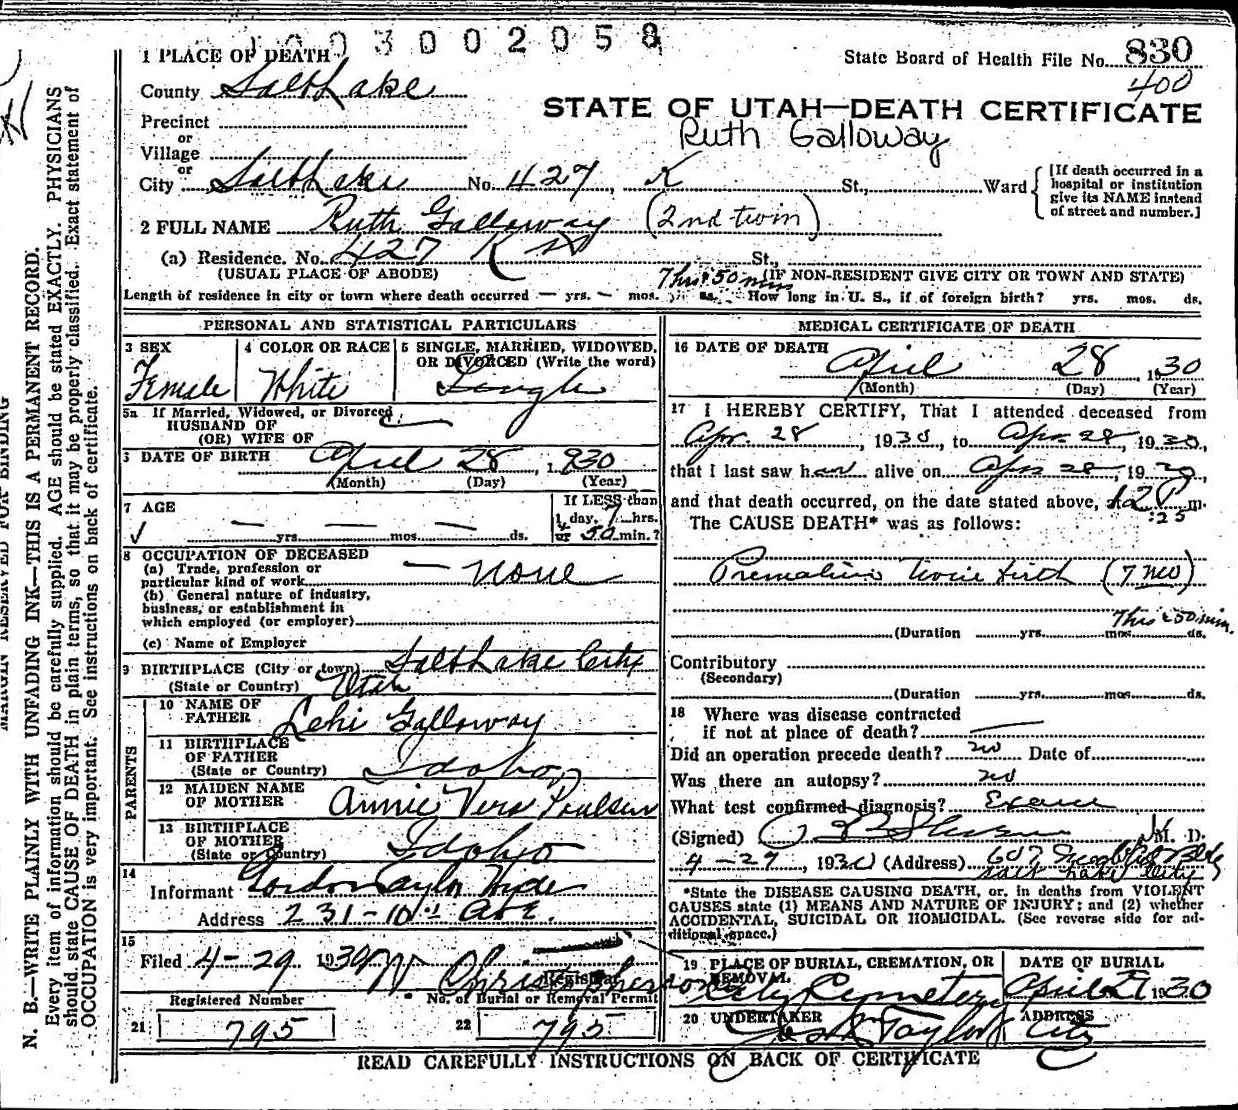 1003002058
1 PLACE OF DEATH
State Board of Health File No. 830
400
County Salt Lake
STATE OF UTAH—DEATH CERTIFICATE
Precinct
Ruth Galloway
or
Village
or
City Salt Lake No. 427, K St., Ward
[If death occurred in a
hospital or institution
give its NAME instead
of street and number.]
2 FULL NAME Ruth Galloway (2nd twin)
(a) Residence. No. 427 K St St.,
(USUAL PLACE OF ABODE) 7 hrs 50 mins (IF NON-RESIDENT GIVE CITY OR TOWN AND STATE)
Length of residence in city or town where death occurred — yrs. — mos. ds. How long in U. S., if of foreign birth? yrs. mos. ds.
PERSONAL AND STATISTICAL PARTICULARS
3 SEX
Female
4 COLOR OR RACE
White
5 SINGLE, MARRIED, WIDOWED,
OR DIVORCED (Write the word)
Single
5a If Married, Widowed, or Divorced
HUSBAND OF
(OR) WIFE OF
DATE OF BIRTH April 28 1930
(Month) (Day) (Year)
7 AGE
— yrs. — mos. — ds.
If LESS than
1 day, 7 hrs.
or 50 min.?
8 OCCUPATION OF DECEASED
(a) Trade, profession or
particular kind of work — none
(b) General nature of industry,
business, or establishment in
which employed (or employer)
(c) Name of Employer
9 BIRTHPLACE (City or town) Salt Lake City
(State or Country) Utah
PARENTS
10 NAME OF
FATHER Lehi Galloway
11 BIRTHPLACE
OF FATHER
(State or Country) Idaho
12 MAIDEN NAME
OF MOTHER Annie Vera Poulsen
13 BIRTHPLACE
OF MOTHER
(State or Country) Idaho
14
Informant Gordon Taylor Hyde
Address 231-10th Ave.
15
Filed 4-29 1930 W Christopherson
Registrar
Registered Number
21 795
No. of Burial or Removal Permit
22 795
MEDICAL CERTIFICATE OF DEATH
16 DATE OF DEATH
April 28, 1930
(Month) (Day) (Year)
17 I HEREBY CERTIFY, That I attended deceased from
Apr. 28, 1930, to Apr 28, 1930,
that I last saw her alive on Apr 28, 1930,
and that death occurred, on the date stated above, at 2 P m.
:25
The CAUSE DEATH* was as follows:
Premature twin birth (7 mo)
7 hrs 50 min.
(Duration yrs. mos. ds.
Contributory
(Secondary)
(Duration yrs. mos. ds.
18 Where was disease contracted
if not at place of death? —
Did an operation precede death? no Date of
Was there an autopsy? no
What test confirmed diagnosis? Exam
(Signed) M. D.
4-29, 1930 (Address) 607
Salt Lake City
*State the DISEASE CAUSING DEATH, or, in deaths from VIOLENT
CAUSES state (1) MEANS AND NATURE OF INJURY; and (2) whether
ACCIDENTAL, SUICIDAL OR HOMICIDAL. (See reverse side for ad-
ditional space.)
19 PLACE OF BURIAL, CREMATION, OR
REMOVAL
City Cemetery
DATE OF BURIAL
April 29 1930
20 UNDERTAKER
Taylor
ADDRESS
City
READ CAREFULLY INSTRUCTIONS ON BACK OF CERTIFICATE
MARGIN RESERVED FOR BINDING
N. B.—WRITE PLAINLY WITH UNFADING INK—THIS IS A PERMANENT RECORD.
Every item of information should be carefully supplied. AGE should be stated EXACTLY. PHYSICIANS
should state CAUSE OF DEATH in plain terms, so that it may be properly classified. Exact statement of
OCCUPATION is very important. See instructions on back of certificate.